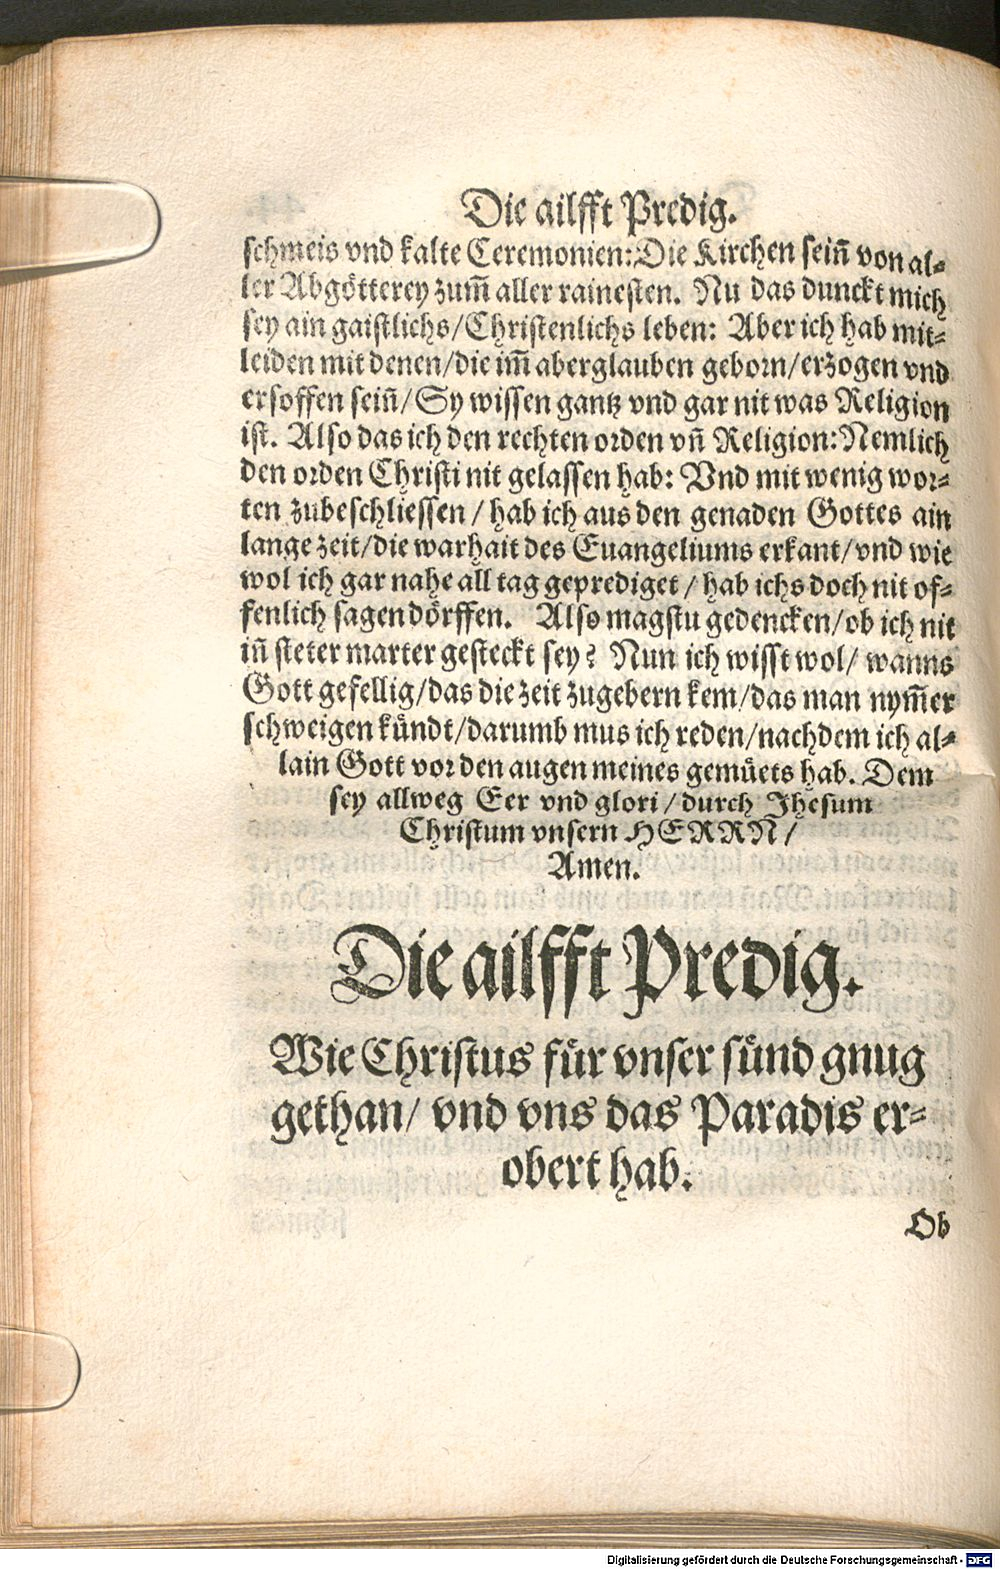 Die ailfft Predig.
schmeis vnd kalte Ceremonien: Die Kirchen sein̄ von al⸗
ler Abgötterey zum̄ aller rainesten. Nu das dunckt mich
sey ain gaistlichs/Christenlichs leben: Aber ich hab mit⸗
leiden mit denen/die im̄ aberglauben geborn/erzogen vnd
ersoffen sein̄/Sy wissen gantz vnd gar nit was Religion
ist. Also das ich den rechten orden vn̄ Religion: Nemlich
den orden Christi nit gelassen hab: Vnd mit wenig wor⸗
ten zubeschliessen/hab ich aus den genaden Gottes ain
lange zeit/die warhait des Euangeliums erkant/vnd wie
wol ich gar nahe all tag geprediget/hab ichs doch nit of⸗
fenlich sagen dörffen. Also magstu gedencken/ob ich nit
in̄ steter marter gesteckt sey? Nun ich wisst wol/wanns
Gott gefellig/das die zeit zugebern kem/das man nym̄er
schweigen kündt/darumb mus ich reden/nachdem ich al⸗
lain Gott vor den augen meines gemüets hab. Dem
sey allweg Eer vnd glori/durch Jhesum
Christum vnsern HERRN/
Amen.
Die ailfft Predig.
Wie Christus für vnser sünd gnug
gethan/vnd vns das Paradis er⸗
obert hab.
Ob
Digitalisierung gefördert durch die Deutsche Forschungsgemeinschaft - DFG